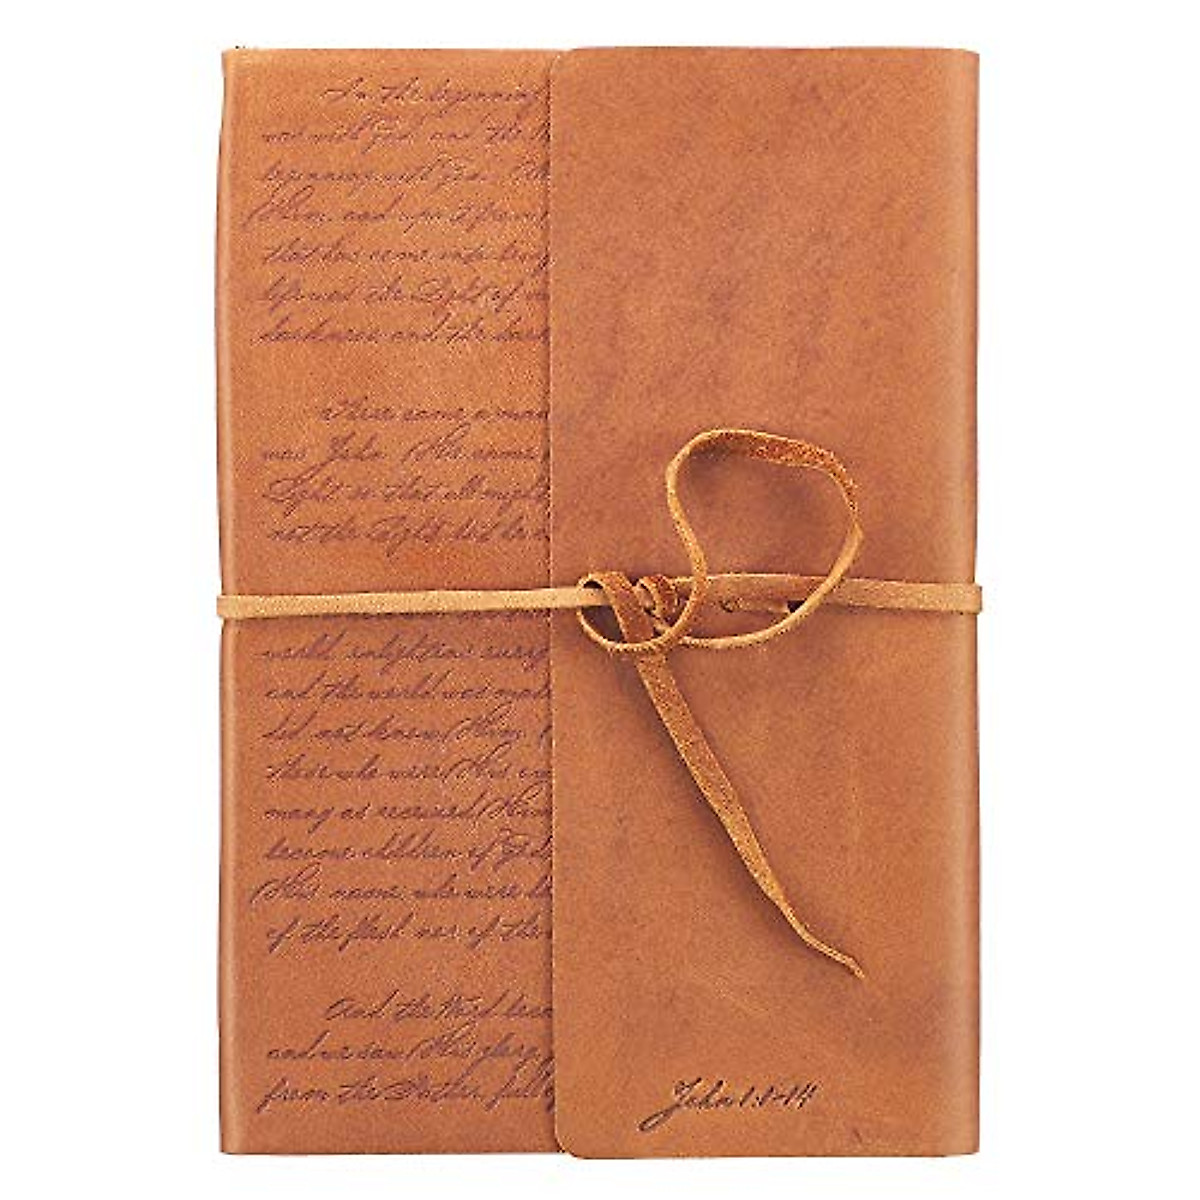 In the beginning
was with God, and the W
beginning with God. Th
Him, and apart from
that has come into being
life was the Light of m
darkness, and the dark
There came a man
was John. He came
Light, so that all might
not the Light, but he
world, enlightens every
and the world was made
did not know Him.
those who were His own
many as received Him
become children of God,
His name, who were b
of the flesh nor of the
And the Word beca
and we saw His glory,
from the Father, full of
John 1:1-14